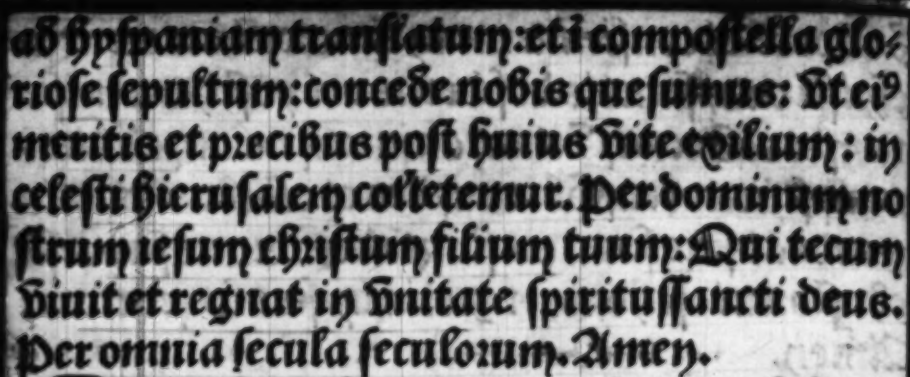 ad hyspaniam translatum: et ī compostella glo⸗
riose sepultum: concede nobis quesumus: vt eiꝰ
meritis et precibus post huius vite exilium: in
celesti hierusalem colletemur. Per dominum no
strum iesum christum filium tuum: Qui tecum
viuit et regnat in vnitate spiritussancti deus.
Per omnia secula seculorum. Amen.